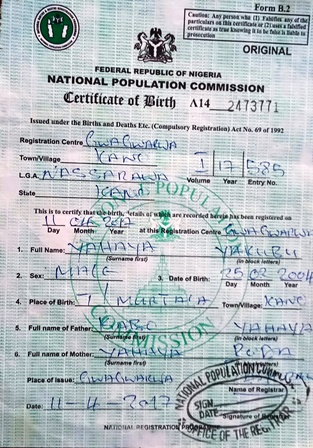 Form B.2
Caution: Any person who (1) Falsifies any of the
particulars on this certificate or (2) uses a falsified
certificate as true knowing it to be false is liable to
prosecution
ORIGINAL
FEDERAL REPUBLIC OF NIGERIA
NATIONAL POPULATION COMMISSION
Certificate of Birth A14 2473771
Issued under the Births and Deaths Etc. (Compulsory Registration) Act No. 69 of 1992
Registration Centre GWAGWARWA
Town/Village KANO I 17 585
L.G.A. NASSARAWA Volume Year Entry No.
State KANO
This is to certify that the birth, details of which are recorded herein has been registered on
11 at this Registration Centre GWAGWARWA
Day Month Year
1. Full Name: YAHAYA YAKUBU
(Surname first) (in block letters)
2. Sex: MALE 3. Date of Birth: 25 02 2004
Day Month Year
4. Place of Birth: MURTALA Town/Village: KANO
5. Full name of Father: YAHAYA
(Surname first) (in block letters)
6. Full name of Mother: YAHAYA
(Surname first) (in block letters)
Place of Issue: GWAGWARWA
Name of Registrar
Date: 11-4-2017 Signature of
NATIONAL REGISTRATION
NATIONAL POPULATION COMMISSION
SIGN
DATE
OFFICE OF THE REGISTRAR